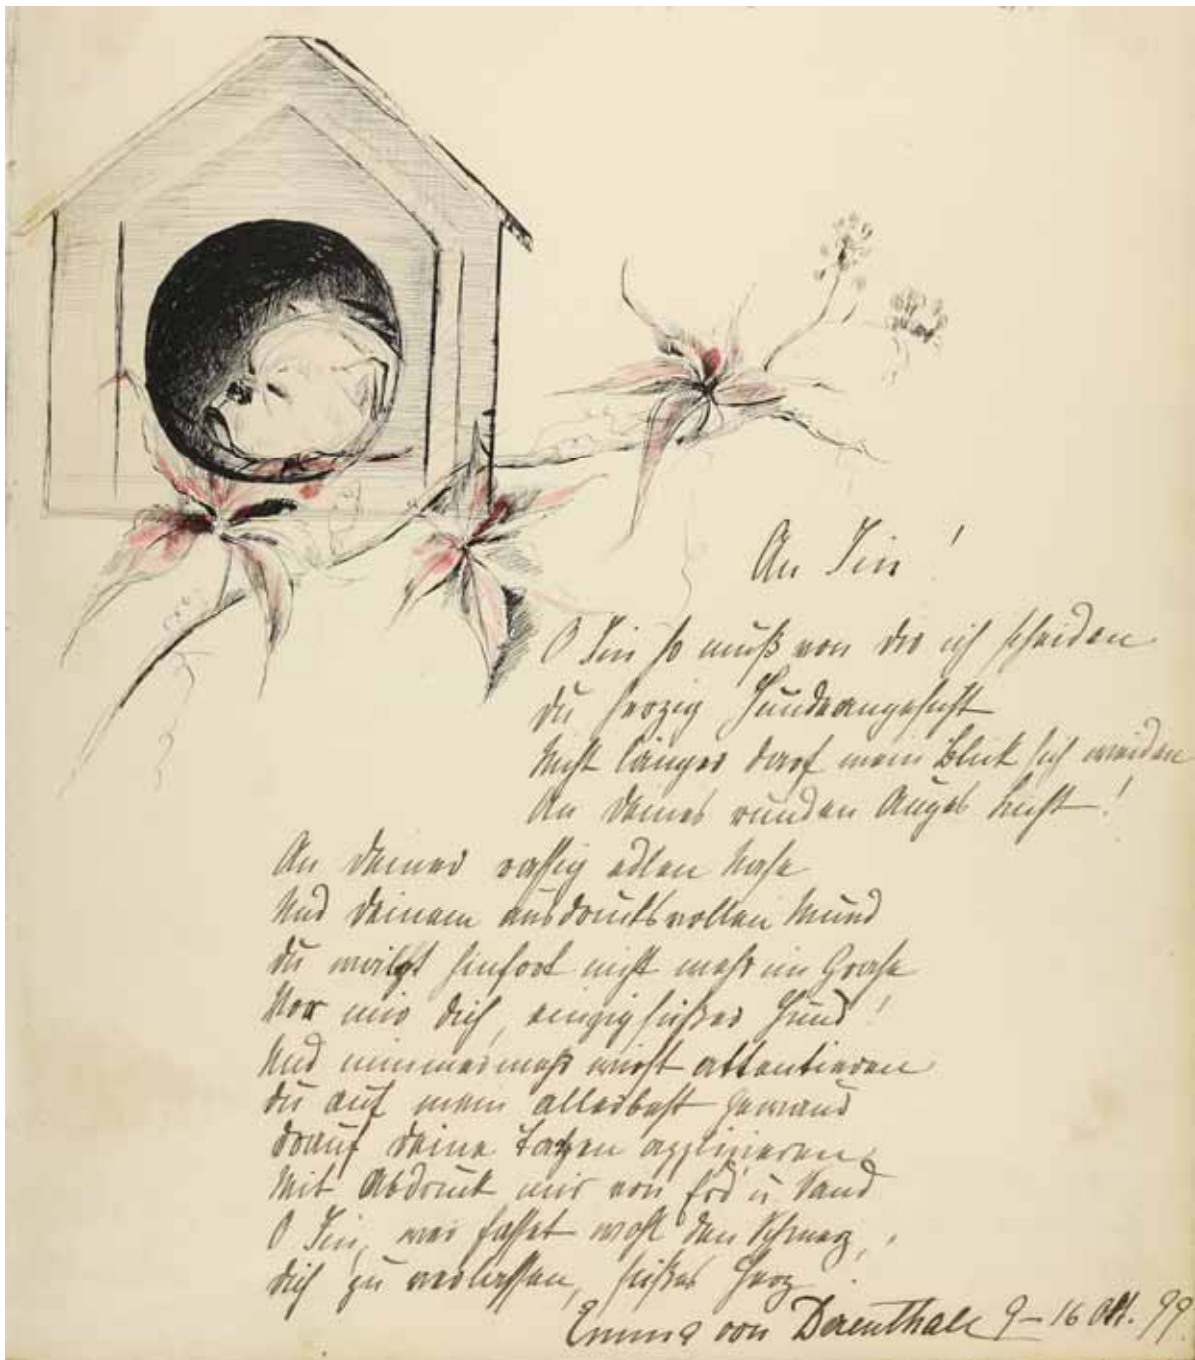 An Jin!
O Jin so muß von dir ich scheiden
Du herzig Hundeangesicht
Nicht länger darf mein Blick sich weiden
An deines runden Auges Licht!
An deiner rassig edlen Nase
Und deinem ausdrucksvollen Mund
Du wälzst hinfort nicht mehr im Grase
Vor mir dich, einzig süßer Hund!
Und nimmermehr wirst attentieren
Du auf mein allerbest Gewand
Drauf deine Tatzen applizieren
Mit Abdruck mir von Erd' u. Sand
O Jin, wer fasset wohl den Schmerz,
Dich zu verlassen, süßes Herz!
Emma von Derenthall 9–16 Okt. 99